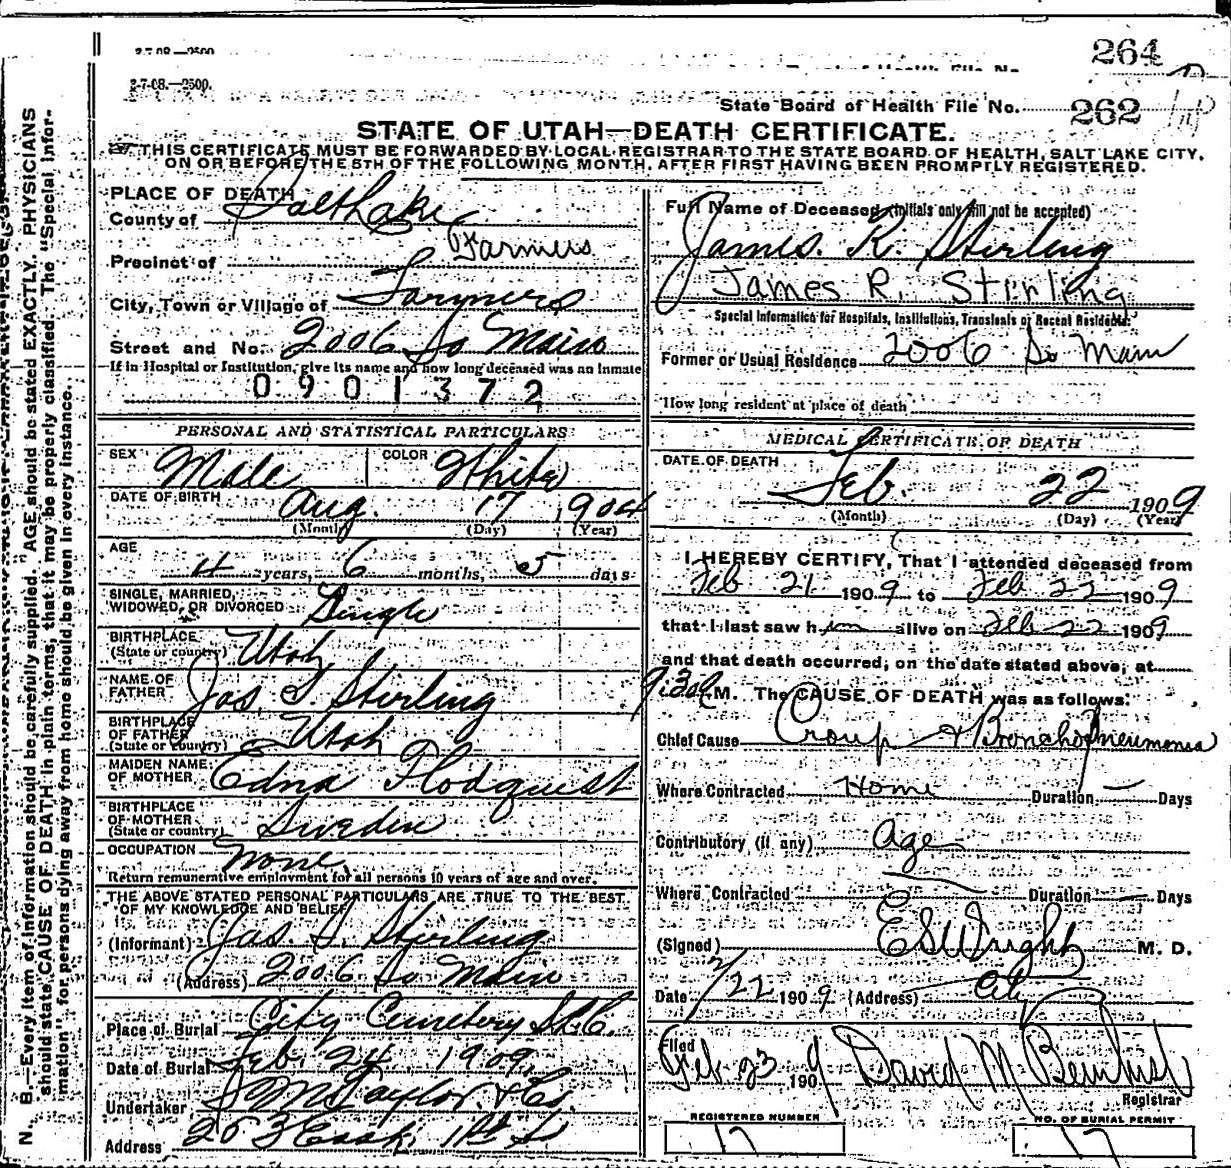 264
2-7-08.—2500.
State Board of Health File No. 262
STATE OF UTAH—DEATH CERTIFICATE.
THIS CERTIFICATE MUST BE FORWARDED BY LOCAL REGISTRAR TO THE STATE BOARD OF HEALTH, SALT LAKE CITY,
ON OR BEFORE THE 5TH OF THE FOLLOWING MONTH, AFTER FIRST HAVING BEEN PROMPTLY REGISTERED.
N. B.—Every item of information should be carefully supplied. AGE should be stated EXACTLY. PHYSICIANS
should state CAUSE OF DEATH in plain terms, that it may be properly classified. The "Special Infor-
mation" for persons dying away from home should be given in every instance.
PLACE OF DEATH
County of Salt Lake
Farmers
Precinct of
City, Town or Village of Farmers
Street and No. 2006 So Main
If in Hospital or Institution, give its name and how long deceased was an Inmate
0901372
PERSONAL AND STATISTICAL PARTICULARS
SEX Male COLOR White
DATE OF BIRTH Aug. 17 1904
(Month) (Day) (Year)
AGE
4 years, 6 months, 5 days
SINGLE, MARRIED,
WIDOWED, OR DIVORCED Single
BIRTHPLACE
(State or country) Utah
NAME OF
FATHER Jas. S. Stirling
BIRTHPLACE
OF FATHER
(State or country) Utah
MAIDEN NAME
OF MOTHER Edna Flodquist
BIRTHPLACE
OF MOTHER
(State or country) Sweden
OCCUPATION None
Return remunerative employment for all persons 10 years of age and over.
THE ABOVE STATED PERSONAL PARTICULARS ARE TRUE TO THE BEST
OF MY KNOWLEDGE AND BELIEF
(Informant) Jas. S. Stirling
(Address) 2006 So Main
Place of Burial City Cemetery S.L.C.
Date of Burial Feb. 24, 1909.
Undertaker S M Taylor & Co.
Address 253 East 1st So
Full Name of Deceased (Initials only will not be accepted)
James. R. Stirling
James R. Stirling
Special Information for Hospitals, Institutions, Transients or Recent Residents.
Former or Usual Residence 2006 So Main
How long resident at place of death
MEDICAL CERTIFICATE OF DEATH
DATE OF DEATH
Feb. 22 1909
(Month) (Day) (Year)
I HEREBY CERTIFY, That I attended deceased from
Feb 21 1909 to Feb 22 1909
that I last saw him alive on Feb 22 1909
and that death occurred, on the date stated above, at
9:30 P.M. The CAUSE OF DEATH was as follows:
Chief Cause Croup & Bronchopneumonia
Where Contracted Home Duration — Days
Contributory (if any) Age
Where Contracted Duration Days
(Signed) E S Wright M. D.
Date 2/22 1909 (Address) City
Filed
Feb 23 1909 David M
Registrar
REGISTERED NUMBER
17
NO. OF BURIAL PERMIT
17